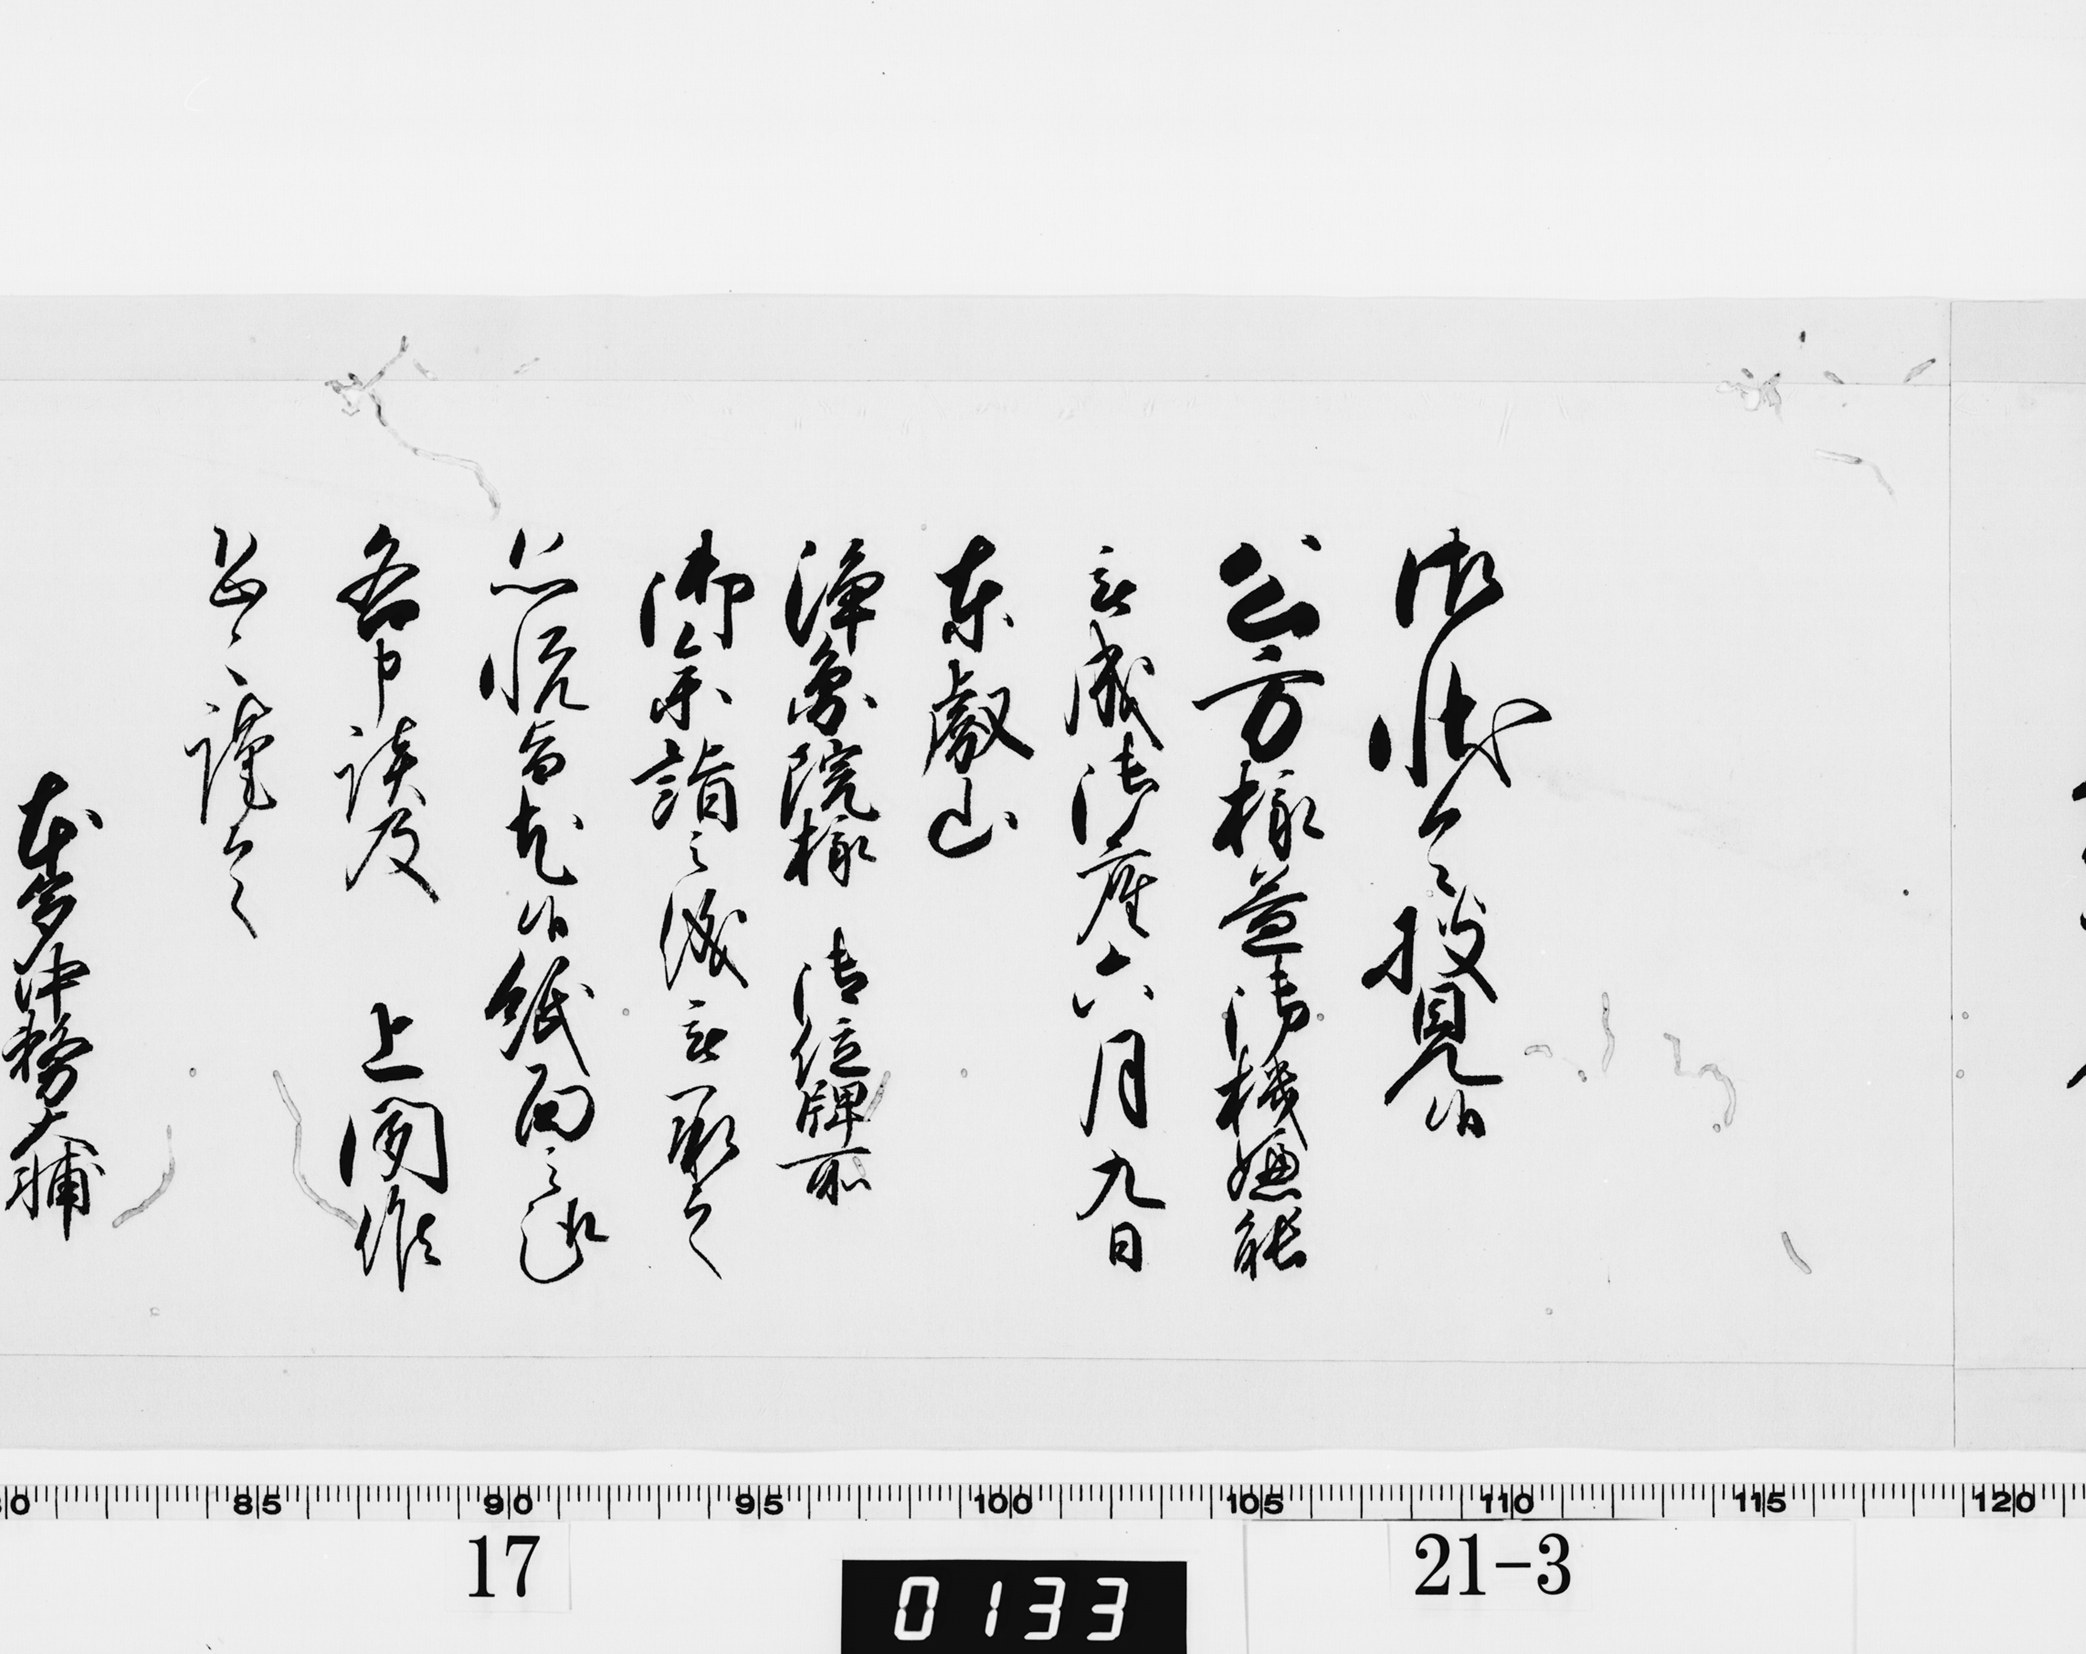 御状令披見候
公方様益御機嫌能
被成御座六月九日
東叡山
浄圓院様 御位牌所
御参詣之儀被承之
恐悦旨尤候紙面之趣
各申談及 上聞候
恐々謹言
本多中務大輔
80 85 90 95 100 105 110 115 120
17
21-3
0133